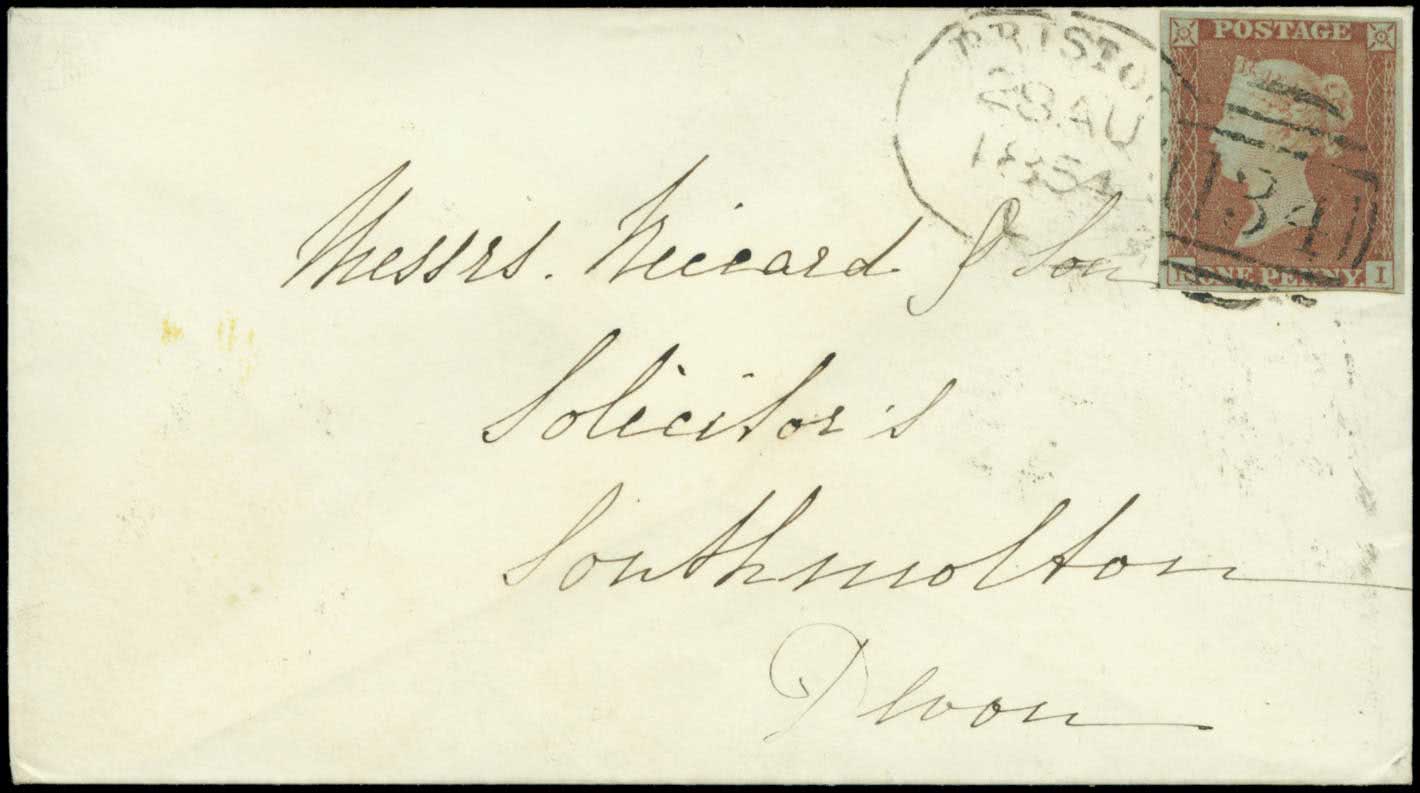 BRISTO
28 AU
1854
POSTAGE
134
ONE PENNY.
I
Messrs. Riccard & Son
Solicitor's
Southmolton
Devon